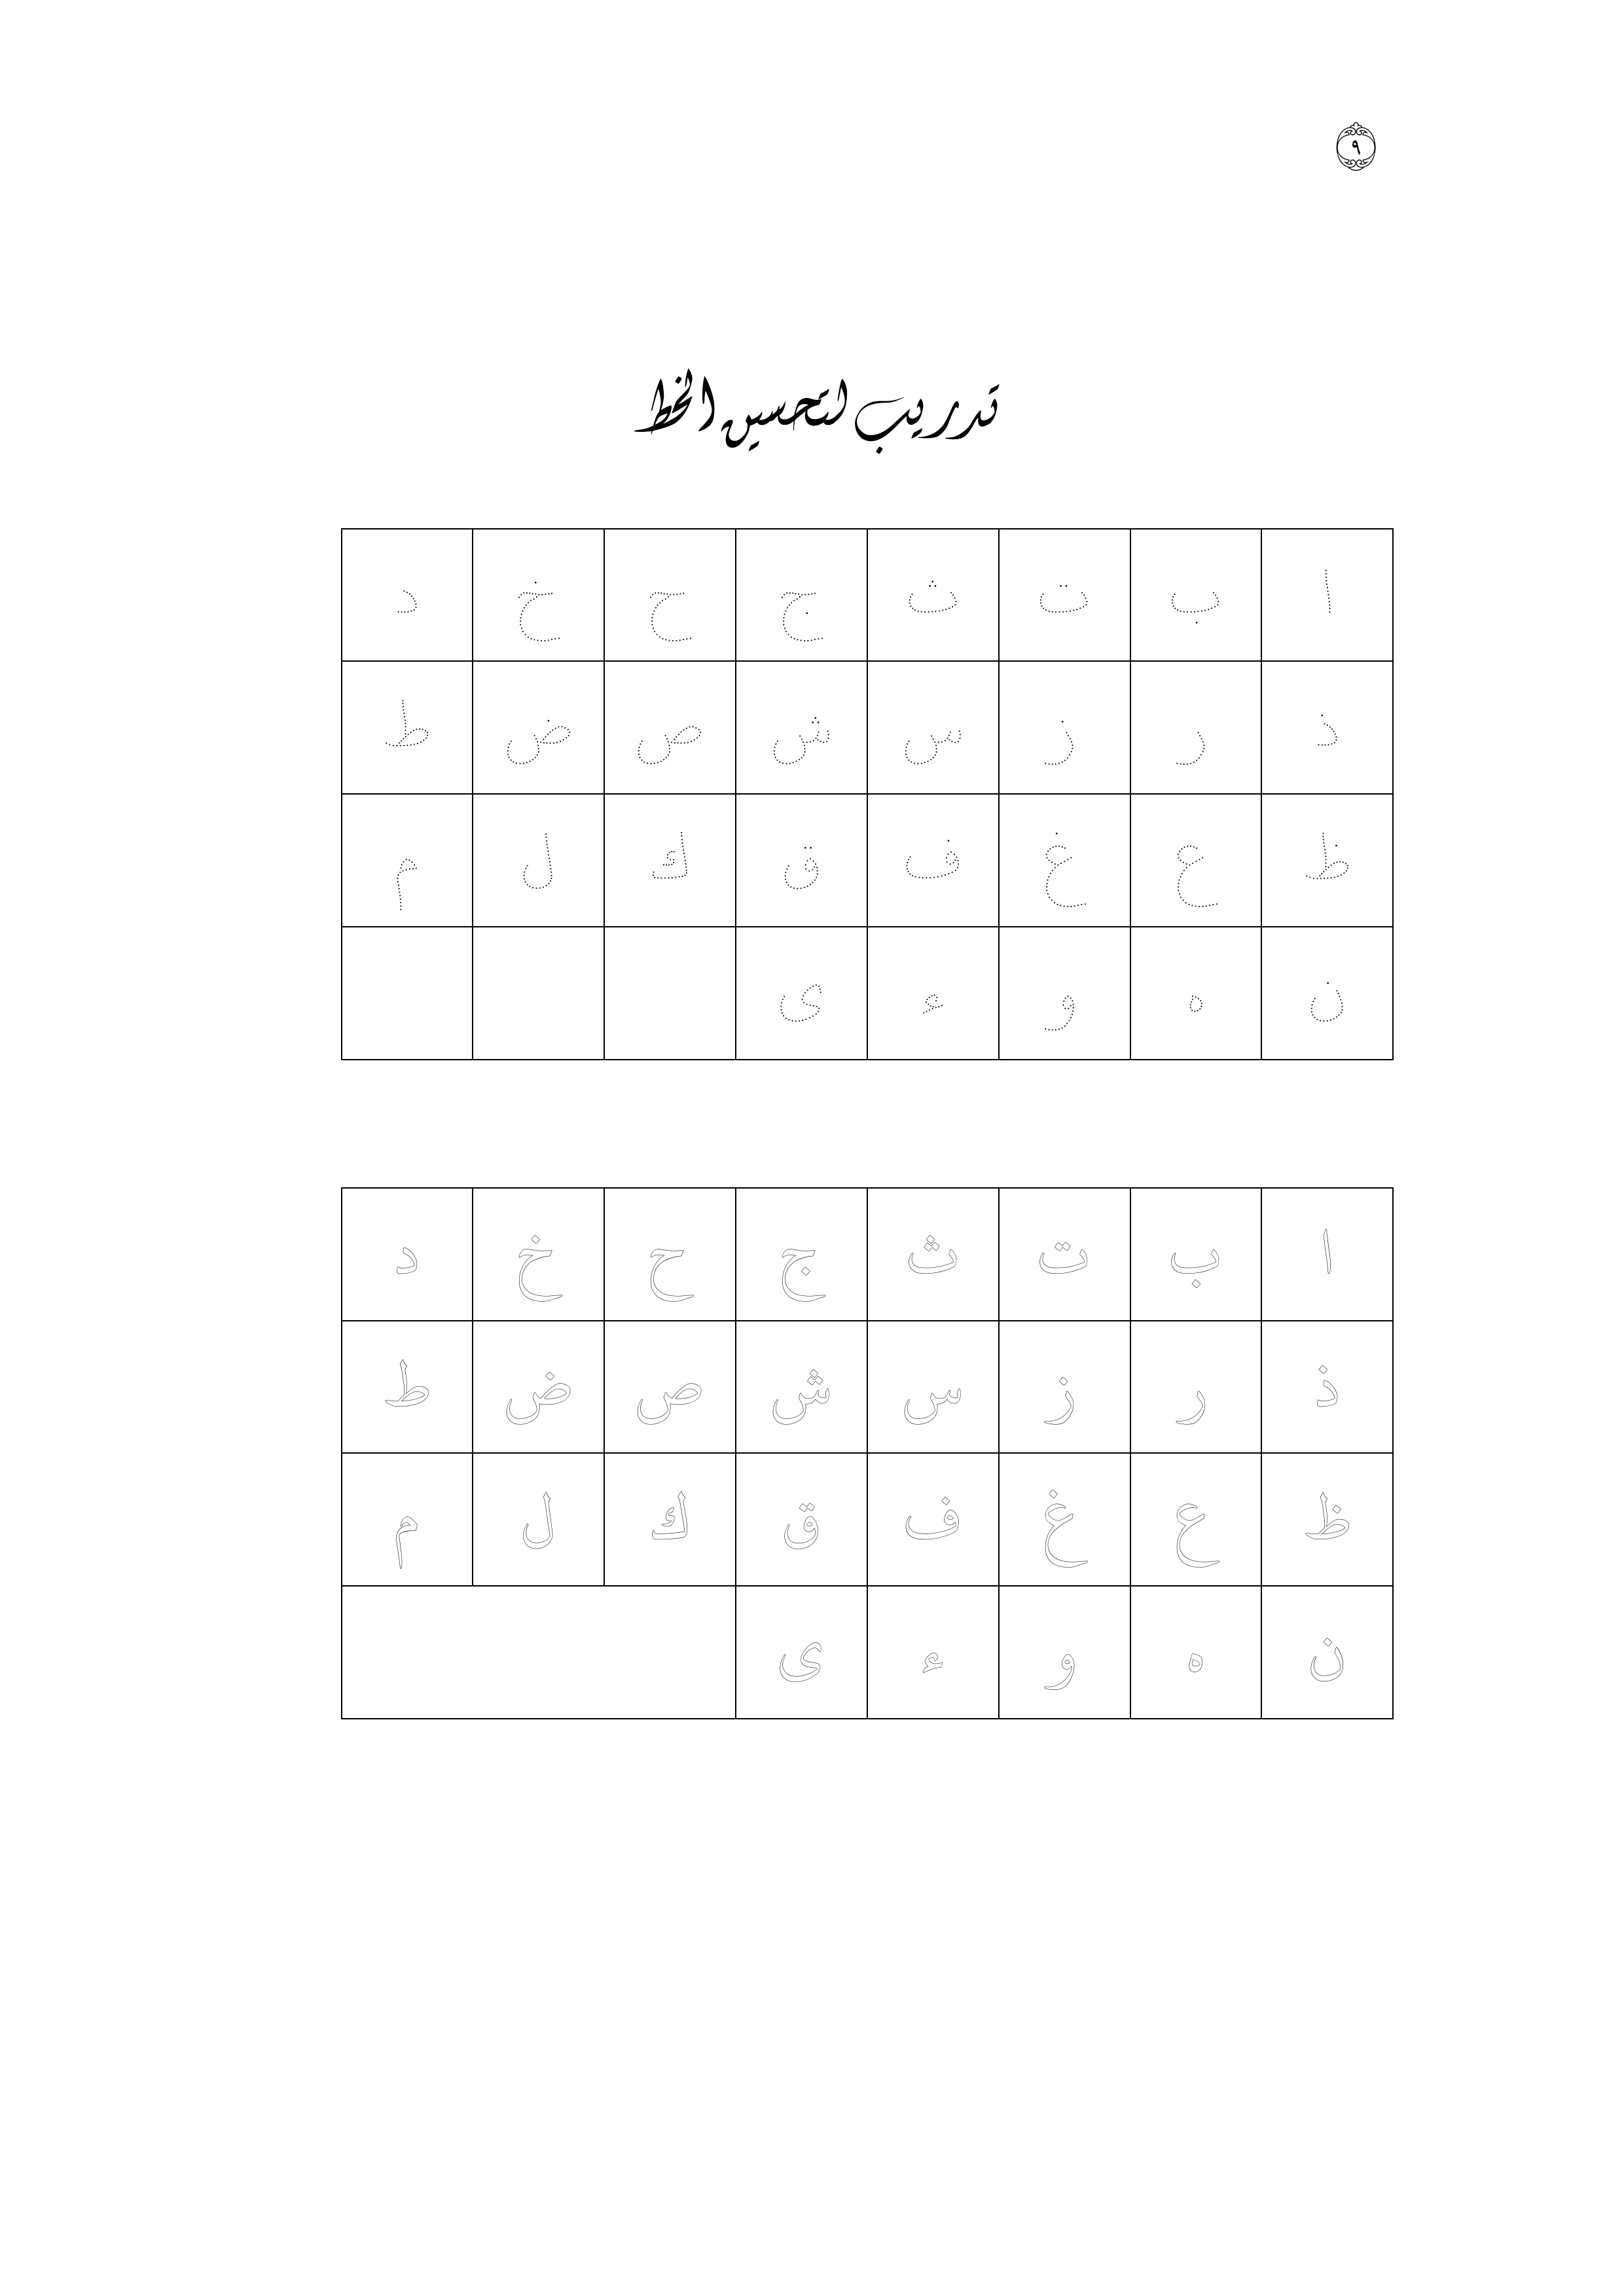 ٩
تدريب لتحسين الخط
ا ب ت ث ج ح خ د
ذ ر ز س ش ص ض ط
ظ ع غ ف ق ك ل م
ن ه و ء ى
ا ب ت ث ج ح خ د
ذ ر ز س ش ص ض ط
ظ ع غ ف ق ك ل م
ن ه و ء ى